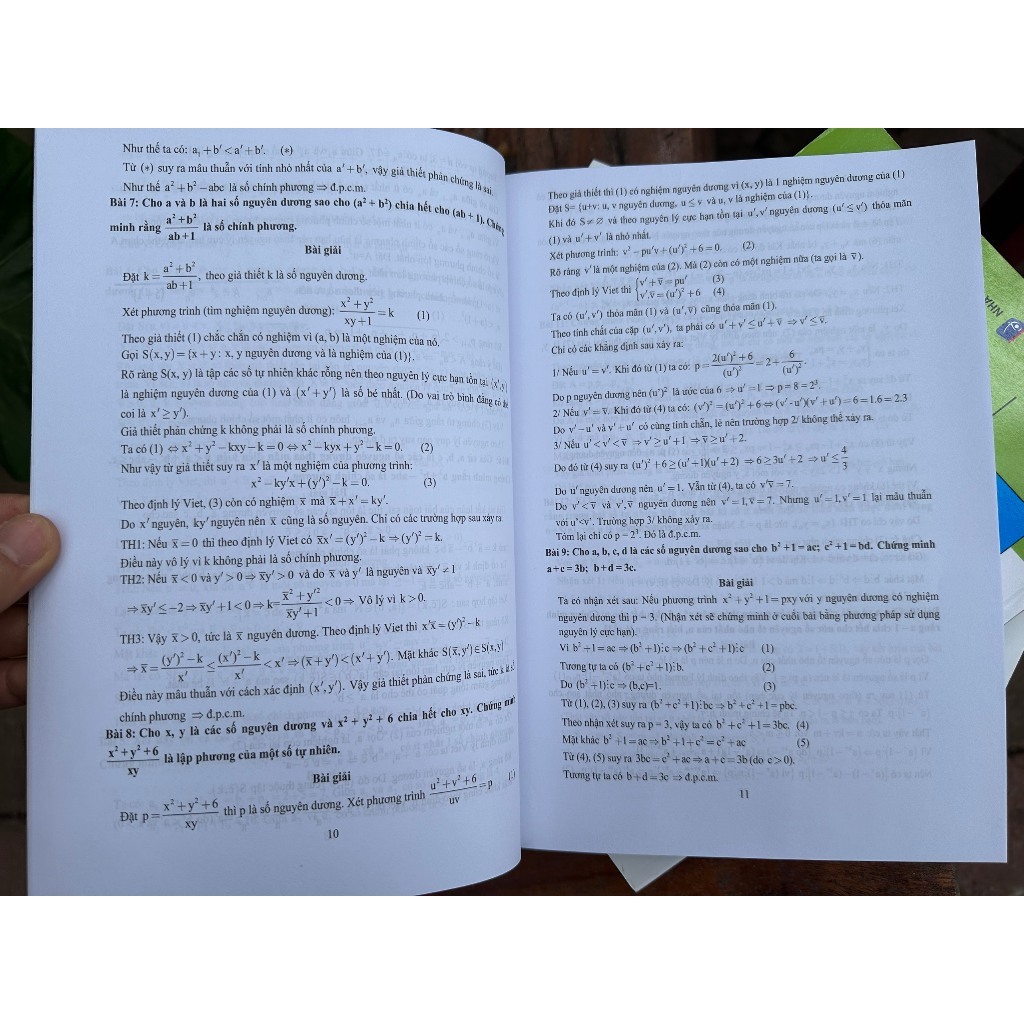 Như thế ta có: a₁ + b′ < a′ + b′. (*)
Từ (*) suy ra mâu thuẫn với tính nhỏ nhất của a′ + b′, vậy giả thiết phản chứng là sai.
Như thế a² + b² − abc là số chính phương ⇒ đ.p.c.m.
Bài 7: Cho a và b là hai số nguyên dương sao cho (a² + b²) chia hết cho (ab + 1). Chứng
minh rằng (a² + b²)/(ab + 1) là số chính phương.
Bài giải
Đặt k = (a² + b²)/(ab + 1), theo giả thiết k là số nguyên dương.
Xét phương trình (tìm nghiệm nguyên dương): (x² + y²)/(xy + 1) = k (1)
Theo giả thiết (1) chắc chắn có nghiệm vì (a, b) là một nghiệm của nó.
Gọi S(x, y) = {x + y : x, y nguyên dương và là nghiệm của (1)}.
Rõ ràng S(x, y) là tập các số tự nhiên khác rỗng nên theo nguyên lý cực hạn tồn tại (x′, y′)
là nghiệm nguyên dương của (1) và (x′ + y′) là số bé nhất. (Do vai trò bình đẳng có thể
coi là x′ ≥ y′).
Giả thiết phản chứng k không phải là số chính phương.
Ta có (1) ⇔ x² + y² − kxy − k = 0 ⇔ x² − kyx + y² − k = 0. (2)
Như vậy từ giả thiết suy ra x′ là một nghiệm của phương trình:
x² − ky′x + (y′)² − k = 0. (3)
Theo định lý Viet, (3) còn có nghiệm x̅ mà x̅ + x′ = ky′.
Do x′ nguyên, ky′ nguyên nên x̅ cũng là số nguyên. Chỉ có các trường hợp sau xảy ra
TH1: Nếu x̅ = 0 thì theo định lý Viet có x̅x′ = (y′)² − k ⇒ (y′)² = k.
Điều này vô lý vì k không phải là số chính phương.
TH2: Nếu x̅ < 0 và y′ > 0 ⇒ x̅y′ > 0 và do x̅ và y′ là nguyên và x̅y′ ≠ 1
⇒ x̅y′ ≤ −2 ⇒ x̅y′ + 1 < 0 ⇒ k = (x̅² + y′²)/(x̅y′ + 1) < 0 ⇒ Vô lý vì k > 0.
TH3: Vậy x̅ > 0, tức là x̅ nguyên dương. Theo định lý Viet thì x′x̅ = (y′)² − k
⇒ x̅ = ((y′)² − k)/x′ ≤ ((x′)² − k)/x′ < x′ ⇒ (x̅ + y′) < (x′ + y′). Mặt khác S(x̅, y′) ∈ S(x, y)
Điều này mâu thuẫn với cách xác định (x′, y′). Vậy giả thiết phản chứng là sai, tức k là số
chính phương ⇒ đ.p.c.m.
Bài 8: Cho x, y là các số nguyên dương và x² + y² + 6 chia hết cho xy. Chứng minh
(x² + y² + 6)/xy là lập phương của một số tự nhiên.
Bài giải
Đặt p = (x² + y² + 6)/xy thì p là số nguyên dương. Xét phương trình (u² + v² + 6)/uv = p (1)
10
Theo giả thiết thì (1) có nghiệm nguyên dương vì (x, y) là 1 nghiệm nguyên dương của (1)
Đặt S = {u+v: u, v nguyên dương, u ≤ v và u, v là nghiệm của (1)}.
Khi đó S ≠ ∅ và theo nguyên lý cực hạn tồn tại u′, v′ nguyên dương (u′ ≤ v′) thỏa mãn
(1) và u′ + v′ là nhỏ nhất.
Xét phương trình: v² − pu′v + (u′)² + 6 = 0. (2)
Rõ ràng v′ là một nghiệm của (2). Mà (2) còn có một nghiệm nữa (ta gọi là v̅).
Theo định lý Viet thì { v′ + v̅ = pu′ (3)
v′.v̅ = (u′)² + 6 (4)
Ta có (u′, v′) thỏa mãn (1) và (u′, v̅) cũng thỏa mãn (1).
Theo tính chất của cặp (u′, v′), ta phải có u′ + v′ ≤ u′ + v̅ ⇒ v′ ≤ v̅.
Chỉ có các khẳng định sau xảy ra:
1/ Nếu u′ = v′. Khi đó từ (1) ta có: p = (2(u′)² + 6)/(u′)² = 2 + 6/(u′)².
Do p nguyên dương nên (u′)² là ước của 6 ⇒ u′ = 1 ⇒ p = 8 = 2³.
2/ Nếu v′ = v̅. Khi đó từ (4) ta có: (v′)² = (u′)² + 6 ⇔ (v′ - u′)(v′ + u′) = 6 = 1.6 = 2.3
Do v′ − u′ và v′ + u′ có cùng tính chẵn, lẻ nên trường hợp 2/ không thể xảy ra.
3/ Nếu u′ < v′ < v̅ ⇒ v′ ≥ u′ + 1 ⇒ v̅ ≥ u′ + 2.
Do đó từ (4) suy ra (u′)² + 6 ≥ (u′ + 1)(u′ + 2) ⇒ 6 ≥ 3u′ + 2 ⇒ u′ ≤ 4/3
Do u′ nguyên dương nên u′ = 1. Vẫn từ (4), ta có v′v̅ = 7.
Do v′ < v̅ và v′, v̅ nguyên dương nên v′ = 1, v̅ = 7. Nhưng u′ = 1, v′ = 1 lại mâu thuẫn
với u′<v′. Trường hợp 3/ không xảy ra.
Tóm lại chỉ có p = 2³. Đó là đ.p.c.m.
Bài 9: Cho a, b, c, d là các số nguyên dương sao cho b² + 1 = ac; c² + 1 = bd. Chứng minh
a + c = 3b; b + d = 3c.
Bài giải
Ta có nhận xét sau: Nếu phương trình x² + y² + 1 = pxy với y nguyên dương có nghiệm
nguyên dương thì p = 3. (Nhận xét sẽ chứng minh ở cuối bài bằng phương pháp sử dụng
nguyên lý cực hạn).
Vì b² + 1 = ac ⇒ (b² + 1)⋮c ⇒ (b² + c² + 1)⋮c (1)
Tương tự ta có (b² + c² + 1)⋮b. (2)
Do (b² + 1)⋮c ⇒ (b,c)=1. (3)
Từ (1), (2), (3) suy ra (b² + c² + 1)⋮bc ⇒ b² + c² + 1 = pbc.
Theo nhận xét suy ra p = 3, vậy ta có b² + c² + 1 = 3bc. (4)
Mặt khác b² + 1 = ac ⇒ b² + 1 + c² = c² + ac (5)
Từ (4), (5) suy ra 3bc = c² + ac ⇒ a + c = 3b (do c > 0).
Tương tự ta có b + d = 3c ⇒ đ.p.c.m.
11
NHÀ